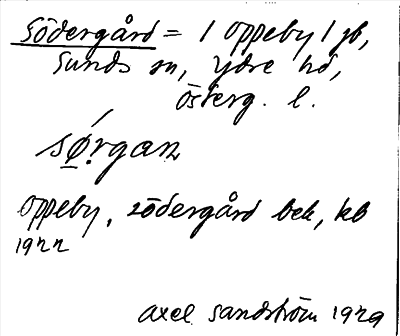 Södergård = 1 Oppeby 1 jb,
Sunds sn, Ydre hd,
Österg. l.
sø̀rgan
Oppeby, Södergård bek, kb
1922
Axel Sandström 1929